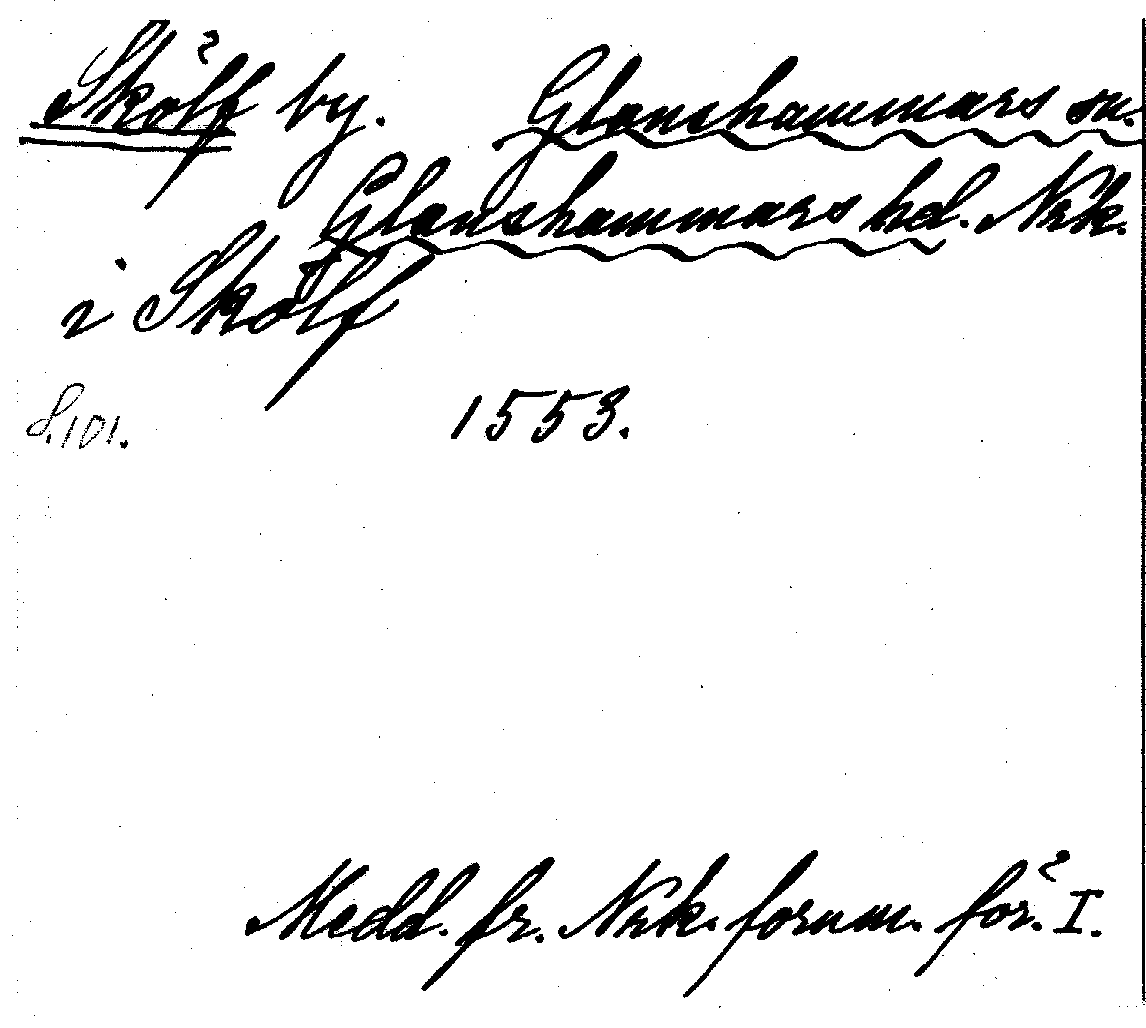 Skölf by. Glanshammars sn.
Glanshammars hd. Nrk.
i Skölf
S. 101. 1553.
Medd. fr. Nrk. fornm. för. I.